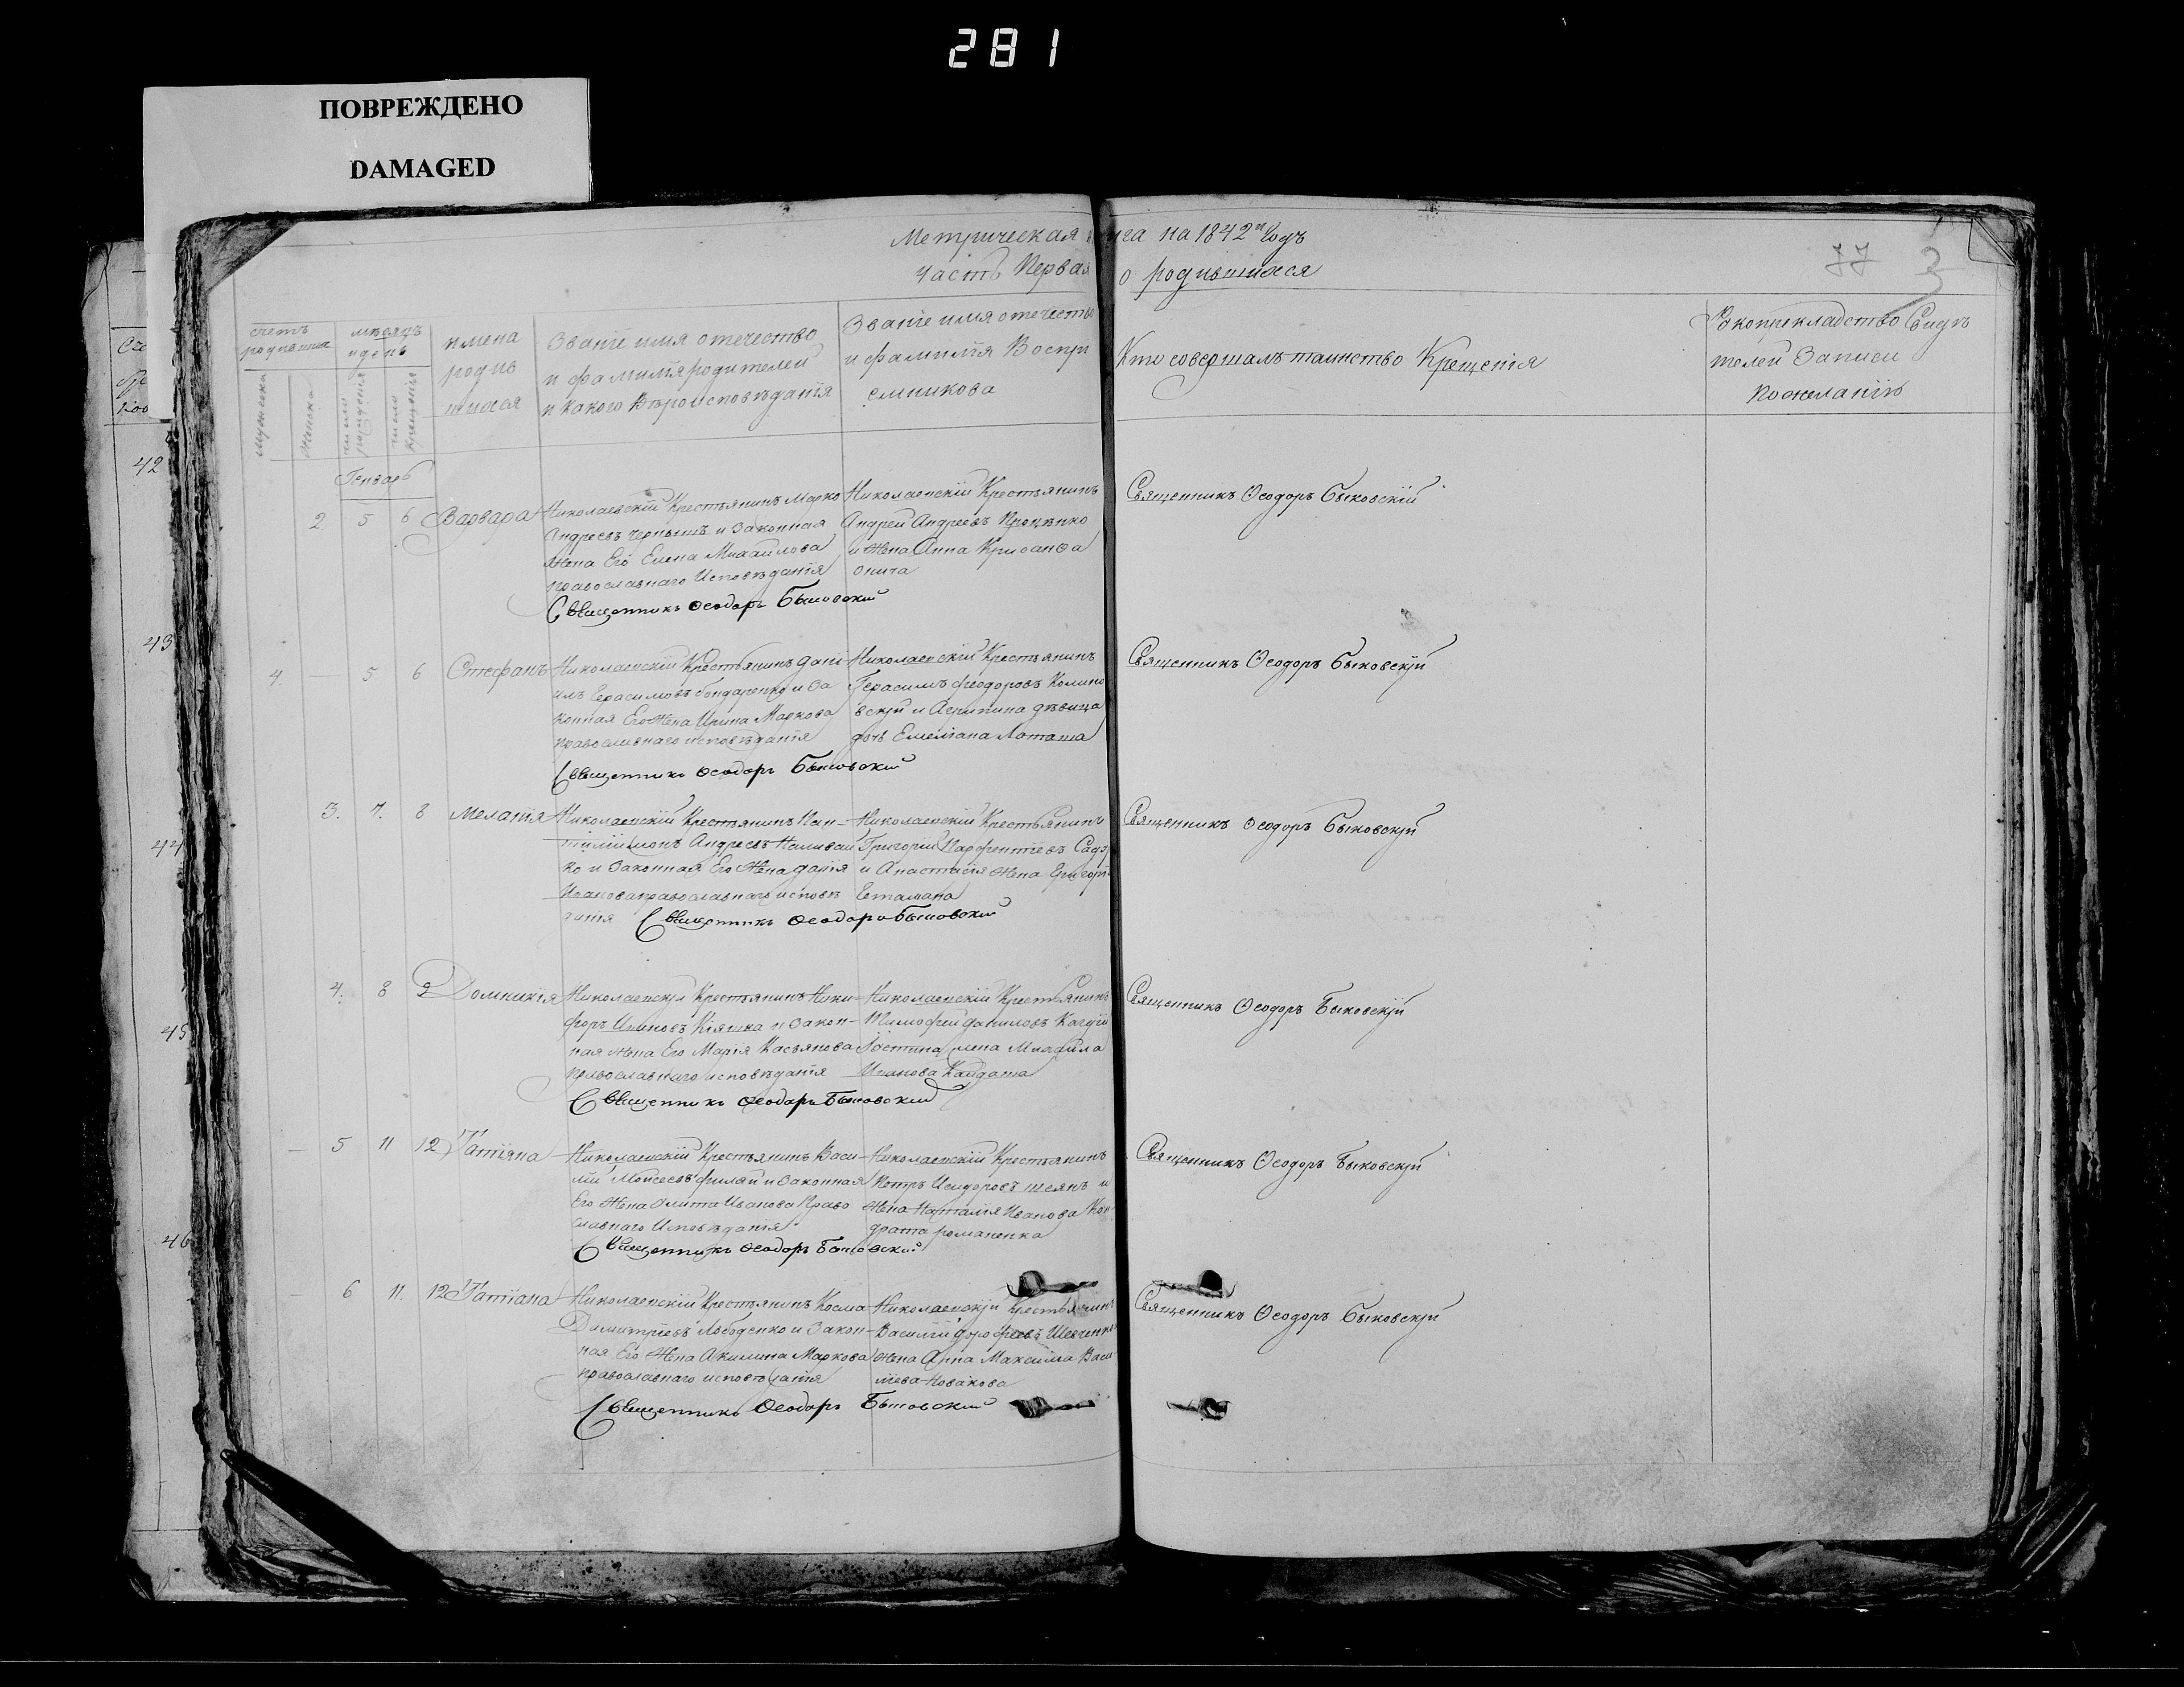 281
ПОВРЕЖДЕНО
DAMAGED
Метрическая нига на 1842й Годъ
часть Первая о родившихся
77 3
счетъ родившихся
мужеска
женска
мѣсяцъ и день
число рожденія
число крещенія
имена родив шихся
Званіе имя отечество
и фамилія родителей
и какого Вѣроисповѣданія
Званіе имя отечество
и фамилія Воспри
емникова
Кто совершалъ таинство Крещенія
Рукоприкладство Свидѣ
телей Записи
по желанію
42
43
44
45
46
Генварь
2 5 6 Варвара
Николаевскій Крестьянинъ Марко
Андреевъ Чернышъ и Законная
Жена Его Елена Михайлова
православнаго Исповѣданія
Священникъ Ѳеодоръ Быковскій
Николаевскій Крестьянинъ
Андрей Андреевъ Проценко
и Жена Анна
Священникъ Ѳеодоръ Быковскій
4 — 5 6 Стефанъ
Николаевскій Крестьянинъ Дані
илъ Герасимовъ Бондаренко и За
конная Его Жена Ирина Маркова
православнаго исповѣданія
Священникъ Ѳеодоръ Быковскій
Николаевскій Крестьянинъ
Герасимъ Феодоровъ Колино
вскій и Агрипина дѣвица
дочь Емеліана Латаша
Священникъ Ѳеодоръ Быковскій
3. 7. 8 Меланія
Николаевскій Крестьянинъ Пан-
тилиимонъ Андреевъ Наливай
ко и Законная Его Жена Дарія
Иванова православнаго исповѣ
данія Священникъ Ѳеодоръ Быковскій
Николаевскій Крестьянинъ
Григорій Парфентіевъ
и Анастасія Жена Григорія
Священникъ Ѳеодоръ Быковскій
4. 8 9 Домникія
Николаевскій Крестьянинъ Ники-
форъ Ивановъ Кіяшка и Закон-
ная Жена Его Марія Касьянова
православнаго исповѣданія
Священникъ Ѳеодоръ Быковскій
Николаевскій Крестьянинъ
Тимофей Даниловъ
Іостина жена Михайла
Иванова Кандаша
Священникъ Ѳеодоръ Быковскій
— 5 11 12 Татіяна
Николаевскій Крестьянинъ Васи-
лій Мойсеевъ Филяй и Законная
Его Жена Улита Иванова Право
славнаго Исповѣданія
Священникъ Ѳеодоръ Быковскій
Николаевскій Крестьянинъ
Петръ Исидоровъ и
Жена Наталія Иванова Кон
драта романенка
Священникъ Ѳеодоръ Быковскій
— 6 11. 12 Татіана
Николаевскій Крестьянинъ Косма
Димитріевъ Лободенко и Закон-
ная Его Жена Акилина Маркова
православнаго исповѣданія
Священникъ Ѳеодоръ Быковскій
Николаевскій Крестьянинъ
Василій Дорофеевъ Шевченко
Жена Анна Максима Васи
лева Новакова
Священникъ Ѳеодоръ Быковскій